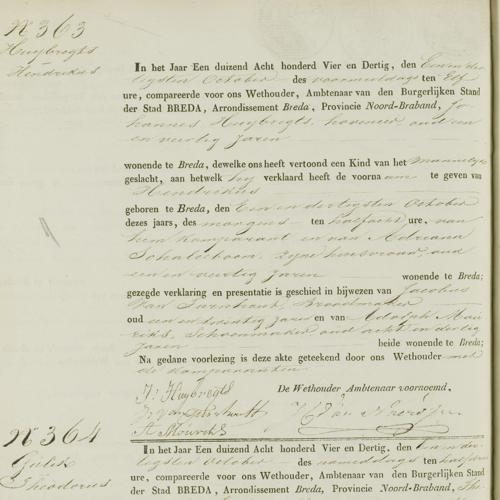 N° 363
Huybregts
Hendrikus
In het Jaar Een duizend Acht honderd Vier en Dertig, den Een en der
tigsten October des voormiddags ten Elf
ure, compareerde voor ons Wethouder, Ambtenaar van den Burgerlijken Stand
der Stad BREDA, Arrondissement Breda, Provincie Noord-Braband, Jo
hannes Huybregts, hovenier oud een
en veertig Jaren
wonende te Breda, dewelke ons heeft vertoond een Kind van het Mannelijk
geslacht, aan hetwelk hij verklaard heeft de voorna am te geven van
Hendrikus
geboren te Breda, den Een en dertigsten October
dezes jaars, des morgens ten half acht ure, van
hem Komparant en van Adriana
zijne huisvrouw, oud
een en veertig Jaren wonende te Breda;
gezegde verklaring en presentatie is geschied in bijwezen van Jacobus
Van Broodmaker
oud een en twintig jaren en van Adolph Mou
riks, Schoenmaker oud acht en dertig
Jaren beide wonende te Breda;
Na gedane voorlezing is deze akte geteekend door ons Wethouder met
de Komparanten
J: Huybregts De Wethouder Ambtenaar voornoemd,
A Mouriks
N° 364
Theodorus
In het Jaar Een duizend Acht honderd Vier en Dertig, den Een en der
tigsten October des namiddags ten half drie
ure, compareerde voor ons Wethouder, Ambtenaar van den Burgerlijken Stand
der Stad BREDA, Arrondissement Breda, Provincie Noord-Braband, The